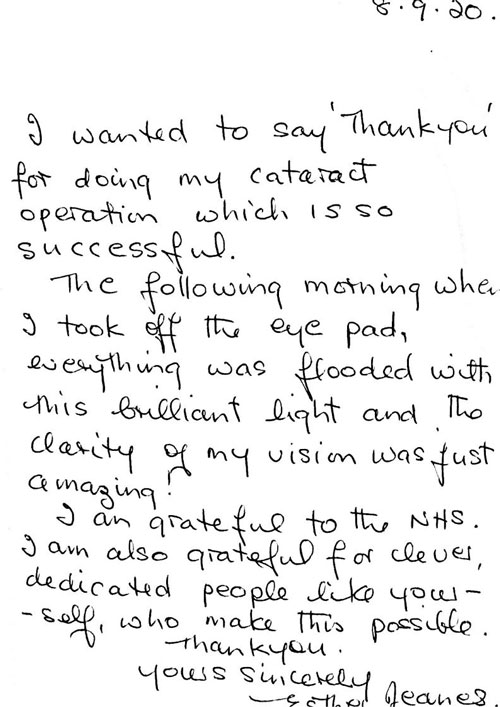 8.9.20.
I wanted to say 'Thankyou'
for doing my cataract
operation which is so
successful.
The following morning when
I took off the eye pad,
everything was flooded with
this brilliant light and the
clarity of my vision was just
amazing!
I am grateful to the NHS.
I am also grateful for clever,
dedicated people like your-
-self, who make this possible.
Thankyou.
yours sincerely
Jeanes.